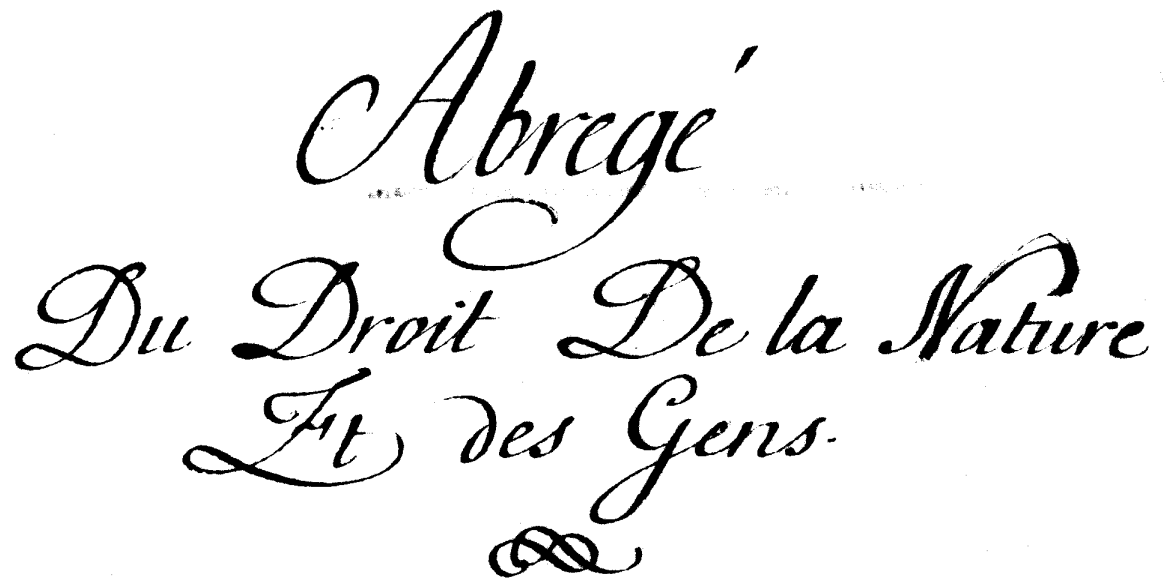 Abregé
Du Droit De la Nature
Et des Gens.